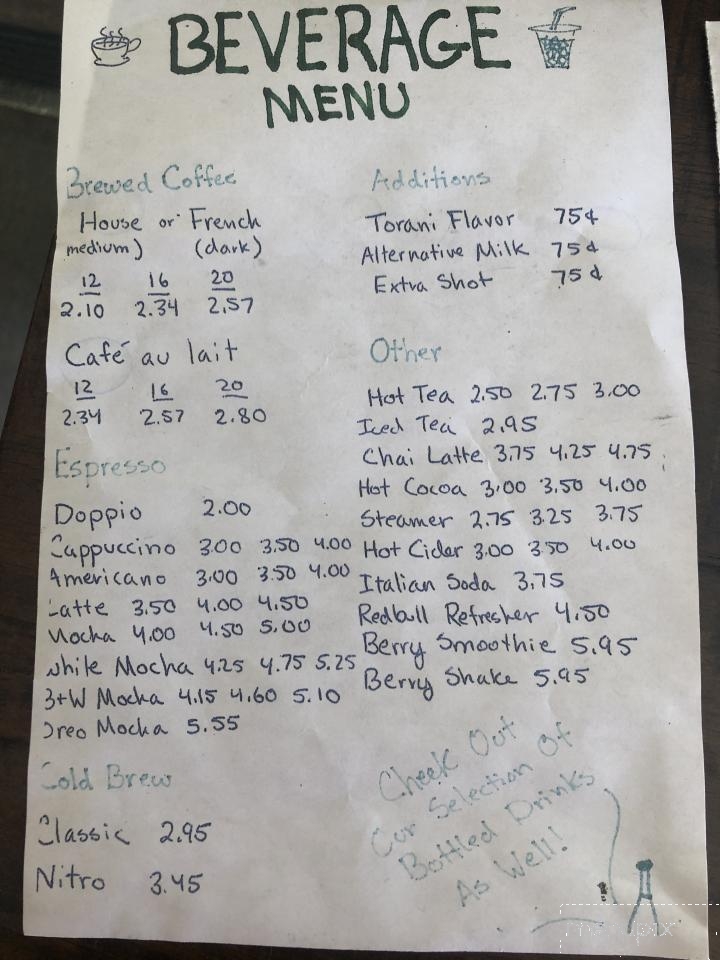 BEVERAGE
MENU
Brewed Coffee
House or French
medium) (dark)
12 16 20
2.10 2.34 2.57
Café au lait
12 16 20
2.34 2.57 2.80
Espresso
Doppio 2.00
Cappuccino 3.00 3.50 4.00
Americano 3.00 3.50 4.00
Latte 3.50 4.00 4.50
Mocha 4.00 4.50 5.00
White Mocha 4.25 4.75 5.25
B+W Mocha 4.15 4.60 5.10
Oreo Mocha 5.55
Cold Brew
Classic 2.95
Nitro 3.45
Additions
Torani Flavor 75¢
Alternative Milk 75¢
Extra Shot 75¢
Other
Hot Tea 2.50 2.75 3.00
Iced Tea 2.95
Chai Latte 3.75 4.25 4.75
Hot Cocoa 3.00 3.50 4.00
Steamer 2.75 3.25 3.75
Hot Cider 3.00 3.50 4.00
Italian Soda 3.75
Redbull Refresher 4.50
Berry Smoothie 5.95
Berry Shake 5.95
Check Out
Our Selection Of
Bottled Drinks
As Well!